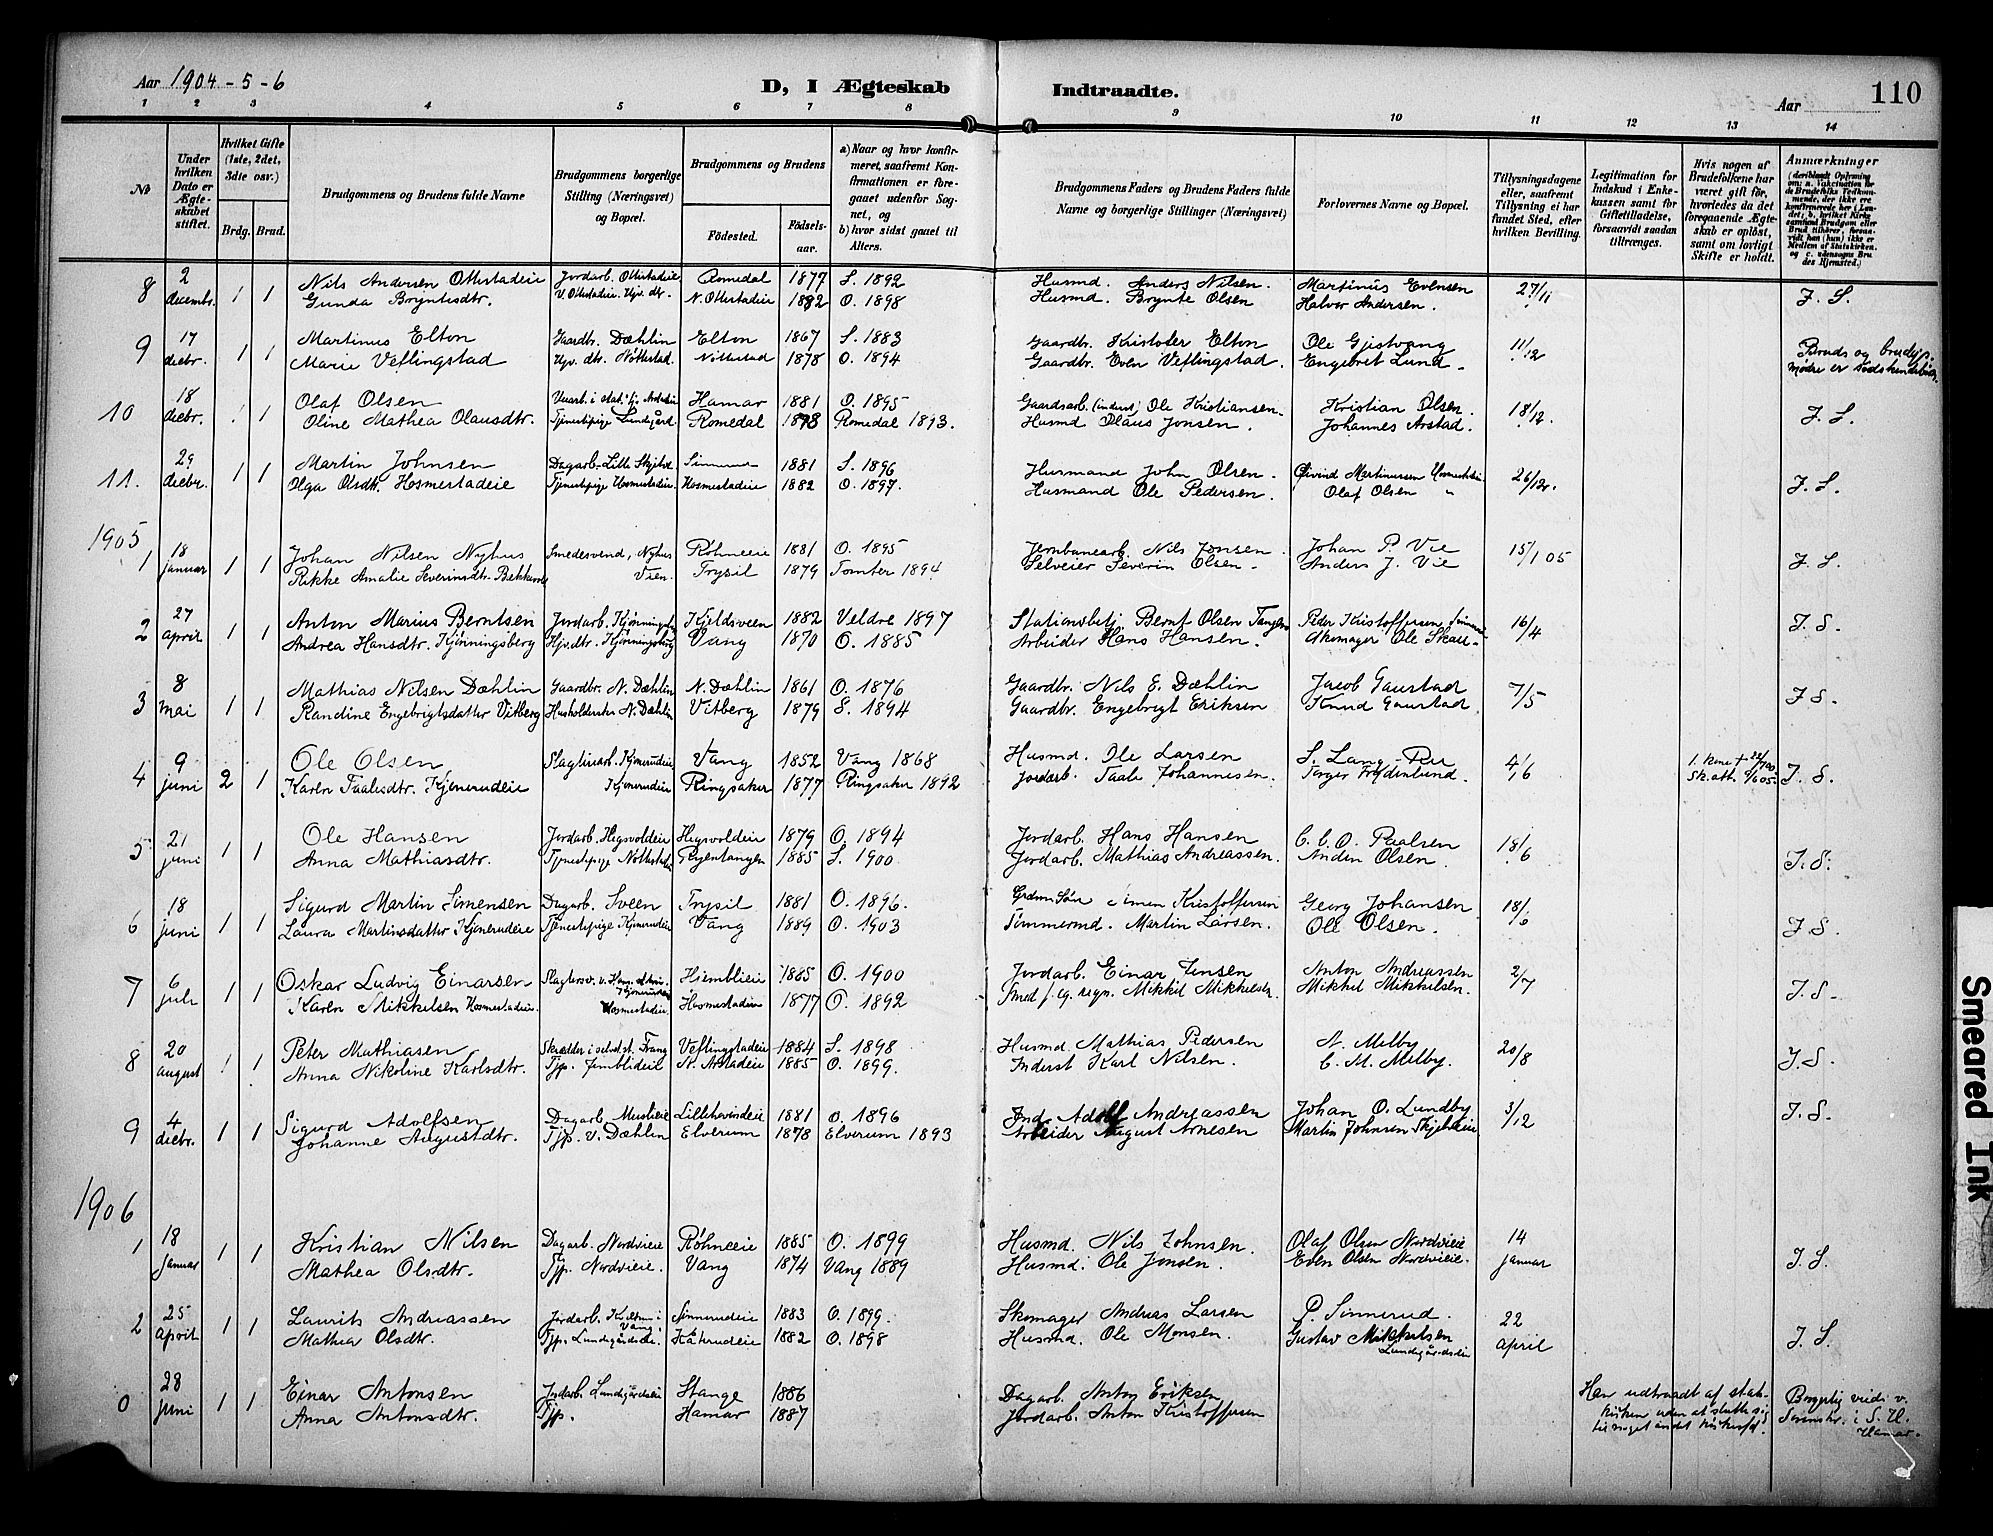 Aar 1904-5-6
D, I Ægteskab Indtraadte.
Aar
110
1 2 3 4 5 6 7 8 9 10 11 12 13 14
No
Under hvilken Dato er Ægteskabet stiftet.
Hvilket Gifte (1ste, 2det, 3die osv.)
Brdg. Brud.
Brudgommens og Brudens fulde Navne
Brudgommens borgerlige Stilling (Næringsvei) og Bopæl.
Brudgommens og Brudens
Fødested.
Fødselsaar.
a) Naar og hvor konfirmeret, saafremt Konfirmationen er foregaaet udenfor Sognet, og
b) hvor sidst gaaet til Alters.
Brudgommens Faders og Brudens Faders fulde Navne og borgerlige Stillinger (Næringsvei)
Forlovernes Navne og Bopæl.
Tillysningsdagene eller, saafremt Tillysning ei har fundet Sted, efter hvilken Bevilling.
Legitimation for Indskud i Enkekassen samt for Giftetilladelse, forsaavidt saadan tiltrænges.
Hvis nogen af Brudefolkene har været gift før, hvorledes da det foregaaende Ægteskab er opløst, samt om lovligt Skifte er holdt.
Anmærkninger
8 2 decembr. 1 1 Nils Andersen Ottestadeie Jordarb. Ottestadeie Romedal 1877 S. 1892 Husmd. Anders Nilsen. Martinus Evensen 27/11 J. S.
Gunda Bryntesdtr. N. Ottestadeie 1882 O. 1898 Husmd. Brynte Olsen Halvor Andersen.
9 17 decbr. 1 1 Martinus Elton Gaardbr. Dæhlin Elton 1867 S. 1883 Gaardbr. Kristofer Elton Ole Gjestvang 11/12 Bruds og brudg.
Marie Veflingstad Nøttestad 1878 O. 1894 Gaardbr. Even Veflingstad. Engebret Lund mødre er sødskendebørn.
10 18 decbr. 1 1 Olaf Olsen Hamar 1881 O. 1895 Gaardsarb. (inderst) Ole Kristiansen Kristian Olsen. 18/12. J. S.
Oline Mathea Olausdtr. Tjenestepige Lundgård. Romedal 1878 Romedal 1893. Husmd Olaus Jonsen. Johannes Arstad.
11. 29 decbr. 1 1 Martin Johnsen Dagarb. Lille 1881 S. 1896 Husmand John Olsen. Øivind Martinussen 26/12. J. S.
Olga Olsdtr. Hosmestadeie Tjenestepige Hosmestadeie. Hosmestadeie 1882 O. 1897. Husmand Ole Pedersen. Olaf Olsen "
1905
1 18 januar 1 1 Johan Nilsen Nyhus Smedesvend, Nyhus Røhneeie 1881 O. 1895 Jernbanearb. Nils Jonsen. Johan P. Vie 15/1 05 J. S.
Rikke Amalie Severinsdtr. Vien. Trysil 1879 Tomter 1894 Selveier Severin Olsen. Anders J. Vie
2 27 april 1 1 Anton Marius Berntsen Jordarb. Kjønningsbg Kjeldsveen 1882 Veldre 1897 Stationsbetj. Bernt Olsen Tangen Peder Kristoffersen 16/4 J. S.
Andrea Hansdtr. Kjønningsberg Kjønningsberg Vang 1870 O. 1885 Arbeider Hans Hansen. Skomager Ole Skau
3 8 mai 1 1 Mathias Nilsen Dæhlin Gaardbr. N. Dæhlin N. Dæhlin 1861 O. 1876 Gaardbr. Nils E. Dæhlin Jacob Gaustad 7/5 J. S.
Randine Engebrigtsdatter Vitberg Husholderske N. Dæhlin Vitberg 1879 S. 1894 Gaardbr. Engebrigt Eriksen Knud Gaustad
4 9 juni 2 1 Ole Olsen Kjønerudeie Vang 1852 Vang 1868 Husmd. Ole Larsen 4/6 1. kone † J. S.
Karen Taalesdtr. Kjønerudeie Kjønerudeie Ringsaker 1877 Ringsaker 1892 Jordarb. Taale Johannesen. Torger Frydenlund.
5 21 juni 1 1 Ole Hansen Jordarb. Hegsvoldeie Hegsvoldeie 1879 O. 1894 Jordarb. Hans Hansen C. C. O. Paalsen 18/6 J. S.
Anna Mathiasdtr. Tjenestepige Nøttestad 1885 S. 1900 Jordarb. Mathias Andreassen. Anden Olsen.
6 18 juni 1 1 Sigurd Martin Simensen Dagarb. Sveen Trysil 1881 O. 1896. Simen Kristoffersen Georg Johansen 18/6 J. S.
Laura Martinsdatter Kjønerudeie Tjenestepige Kjønerudeie Vang 1889 O. 1903 Tømmermd. Martin Larsen. Ole Olsen.
7 6 juli 1 1 Oskar Ludvig Einarsen Hjemblieie 1885 O. 1900 Jordarb. Einar Jensen Anton Andreassen 2/7 J. S.
Karen Mikkelsen Hosmestadeie. Hosmestadeie Hosmestadeie 1877 O. 1892 Smed Mikkel Mikkelsen Mikkel Mikkelsen.
8 20 august 1 1 Peter Mathiasen Skrædder i selvst. Frang Veflingstadeie 1884 S. 1898 Husmd. Mathias Pedersen N. Melby 20/8 J. S.
Anna Nikoline Karlsdtr. Tjp. Jemblieie N. Arstadeie 1885 O. 1899. Inderst Karl Nilsen. C. M. Melby.
9 4 decbr. 1 1 Sigurd Adolfsen Dagarb. Lillehovindeie 1881 O. 1896 Ind. Adolf Andreassen Johan O. Lundby 3/12 J. S.
Johanne Augustdtr. Tjp. v. Dæhlin Elverum 1878 Elverum 1893 Arbeider August Arnesen Martin Johnsen
1906
1 18 januar 1 1 Kristian Nilsen Dagarb. Nordvieie Røhneeie 1885 O. 1899 Husmd. Nils Johnsen. Olaf Olsen Nordvieie 14 januar J. S.
Mathea Olsdtr. Tjp. Nordvieie. Vang 1874 Vang 1889 Husmd. Ole Jonsen. Even Olsen Nordvieie.
2 25 april 1 1 Laurits Andreassen Jordarb. i Vang. Sinnerudeie 1883 O. 1899. Skomager Andreas Larsen P. Sinnerud. 22 april J. S.
Mathea Olsdtr. Tjp. Lundgårdseie. Kåterudeie 1882 O. 1898 Husmd. Ole Monsen. Gustav Mikkelsen Lundgårdseie
0 28 juni 1 1 Einar Antonsen Jordarb. Lundgårdseie Stange 1886 Dagarb. Anton Eriksen Han udtraadt af statskirken uden at slutte sig til noget andet kirkesfd. Borgerlig viede v. i S. H. Hamar.
Anna Antonsdtr. Tjp. Hamar 1887 Jordarb. Anton Kristoffersen
Smeared Ink